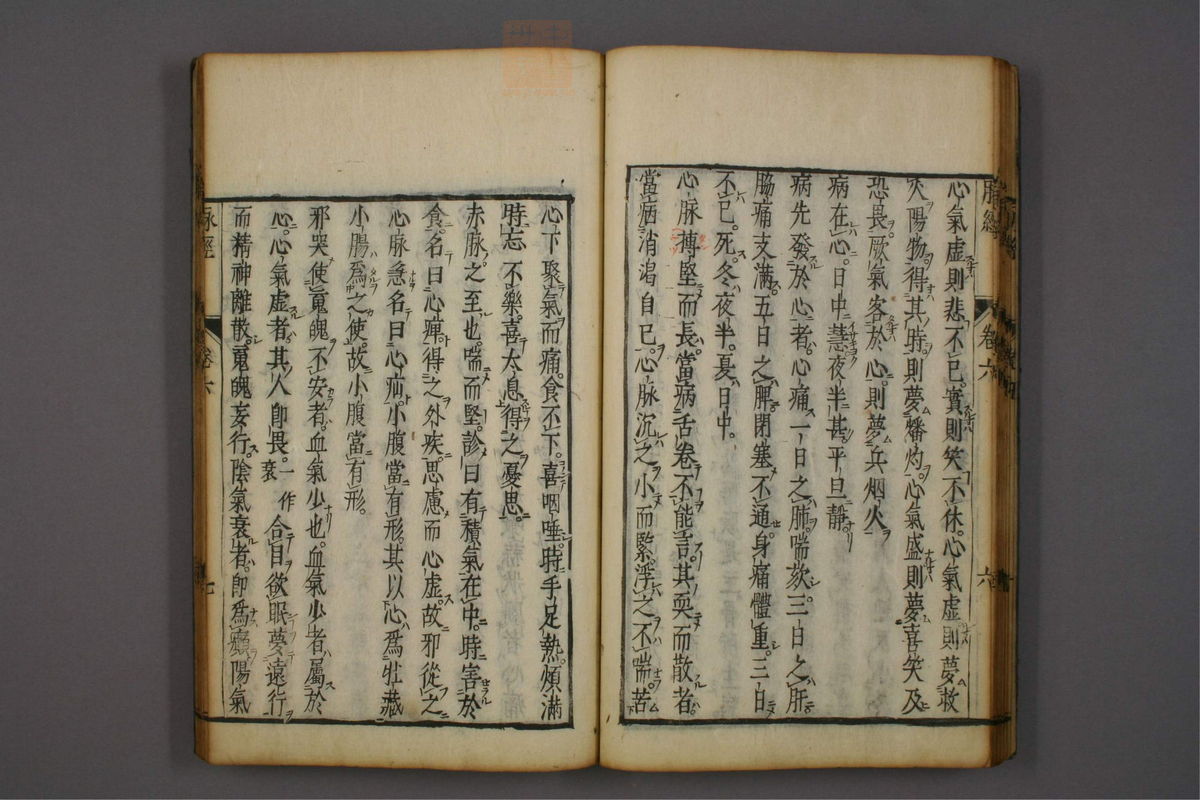 脉經
卷六
六
心氣虛則悲不已實則笑不休心氣虛則夢救
火陽物得其時則夢燔灼心氣盛則夢喜笑及
恐畏厥氣客於心則夢兵烟火
病在心日中慧夜半甚平旦靜
病先發於心者心痛一日之肺喘欬三日之肝
脇痛支滿五日之脾閉塞不通身痛體重三日
不已死冬夜半夏日中
心脉搏堅而長當病舌卷不能言其耎而散者
當病消渴自已心脉沉之小而緊浮之不喘苦
心下聚氣而痛食不下喜咽唾時手足熱煩滿
時忘不樂喜太息得之憂思
赤脉之至也喘而堅診曰有積氣在中時害於
食名曰心痺得之外疾思慮而心虛故邪從之
心脉急名曰心疝小腹當有形其以心為牡藏
小腸為之使故小腹當有形
邪哭使䰟魄不安者血氣少也血氣少者屬於
心心氣虛者其人即畏一作衰合目欲眠夢遠行
而精神離散䰟魄妄行陰氣衰者即為癲陽氣
脉經
卷六
七